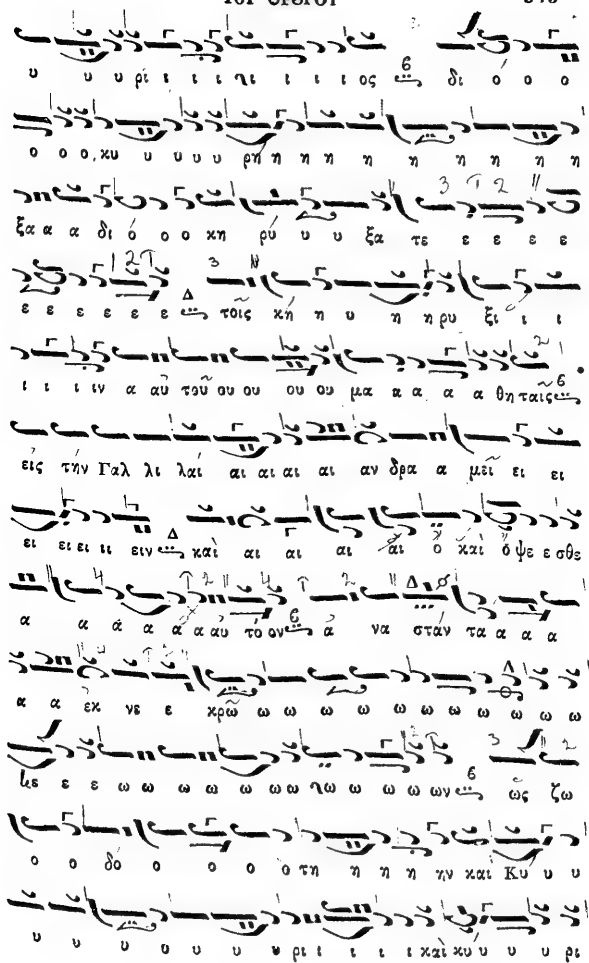 υ υ υ ρί ι ι ι ηι ι ι ι ος 6 δι ό ο ο
ο ο ο, κυ υ υ υ υ ρη η η η η η η η η η
ξα α α δι ό ο ο κη ρύ υ υ ξα τε ε ε ε ε
ε ε ε ε ε ε ε Δ τοῖς κή η υ η η ρυ ξι ι ι
ι ι ι ιν α αὐ τοῦ ου ου ου ου μα α α α α θη ταῖς 6
εἰς τήν Γαλ λι λαί αι αι αι αι αν δρα α μεῖ ει ει
ει ει ει ιι ειν Δ καὶ αι αι αι αι ὅ καὶ ὄ ψε ε σθε
α α ά α α α αὐ τὸ ον 6 ἀ να στάν τα α α α
α α ἐκ νε ε κρῶ ω ω ω ω ω ω ω ω ω ω
ε ε ε ω ω ω ω ω ω ω ηω ω ω ω ων 6 ὡς ζω
ο ο δό ο ο ο ο ό τη η η η ην καὶ Κυ υ υ
υ υ υ υ υ υ υ ρι ι ι ι ι καὶ κύ υ υ υ ρι